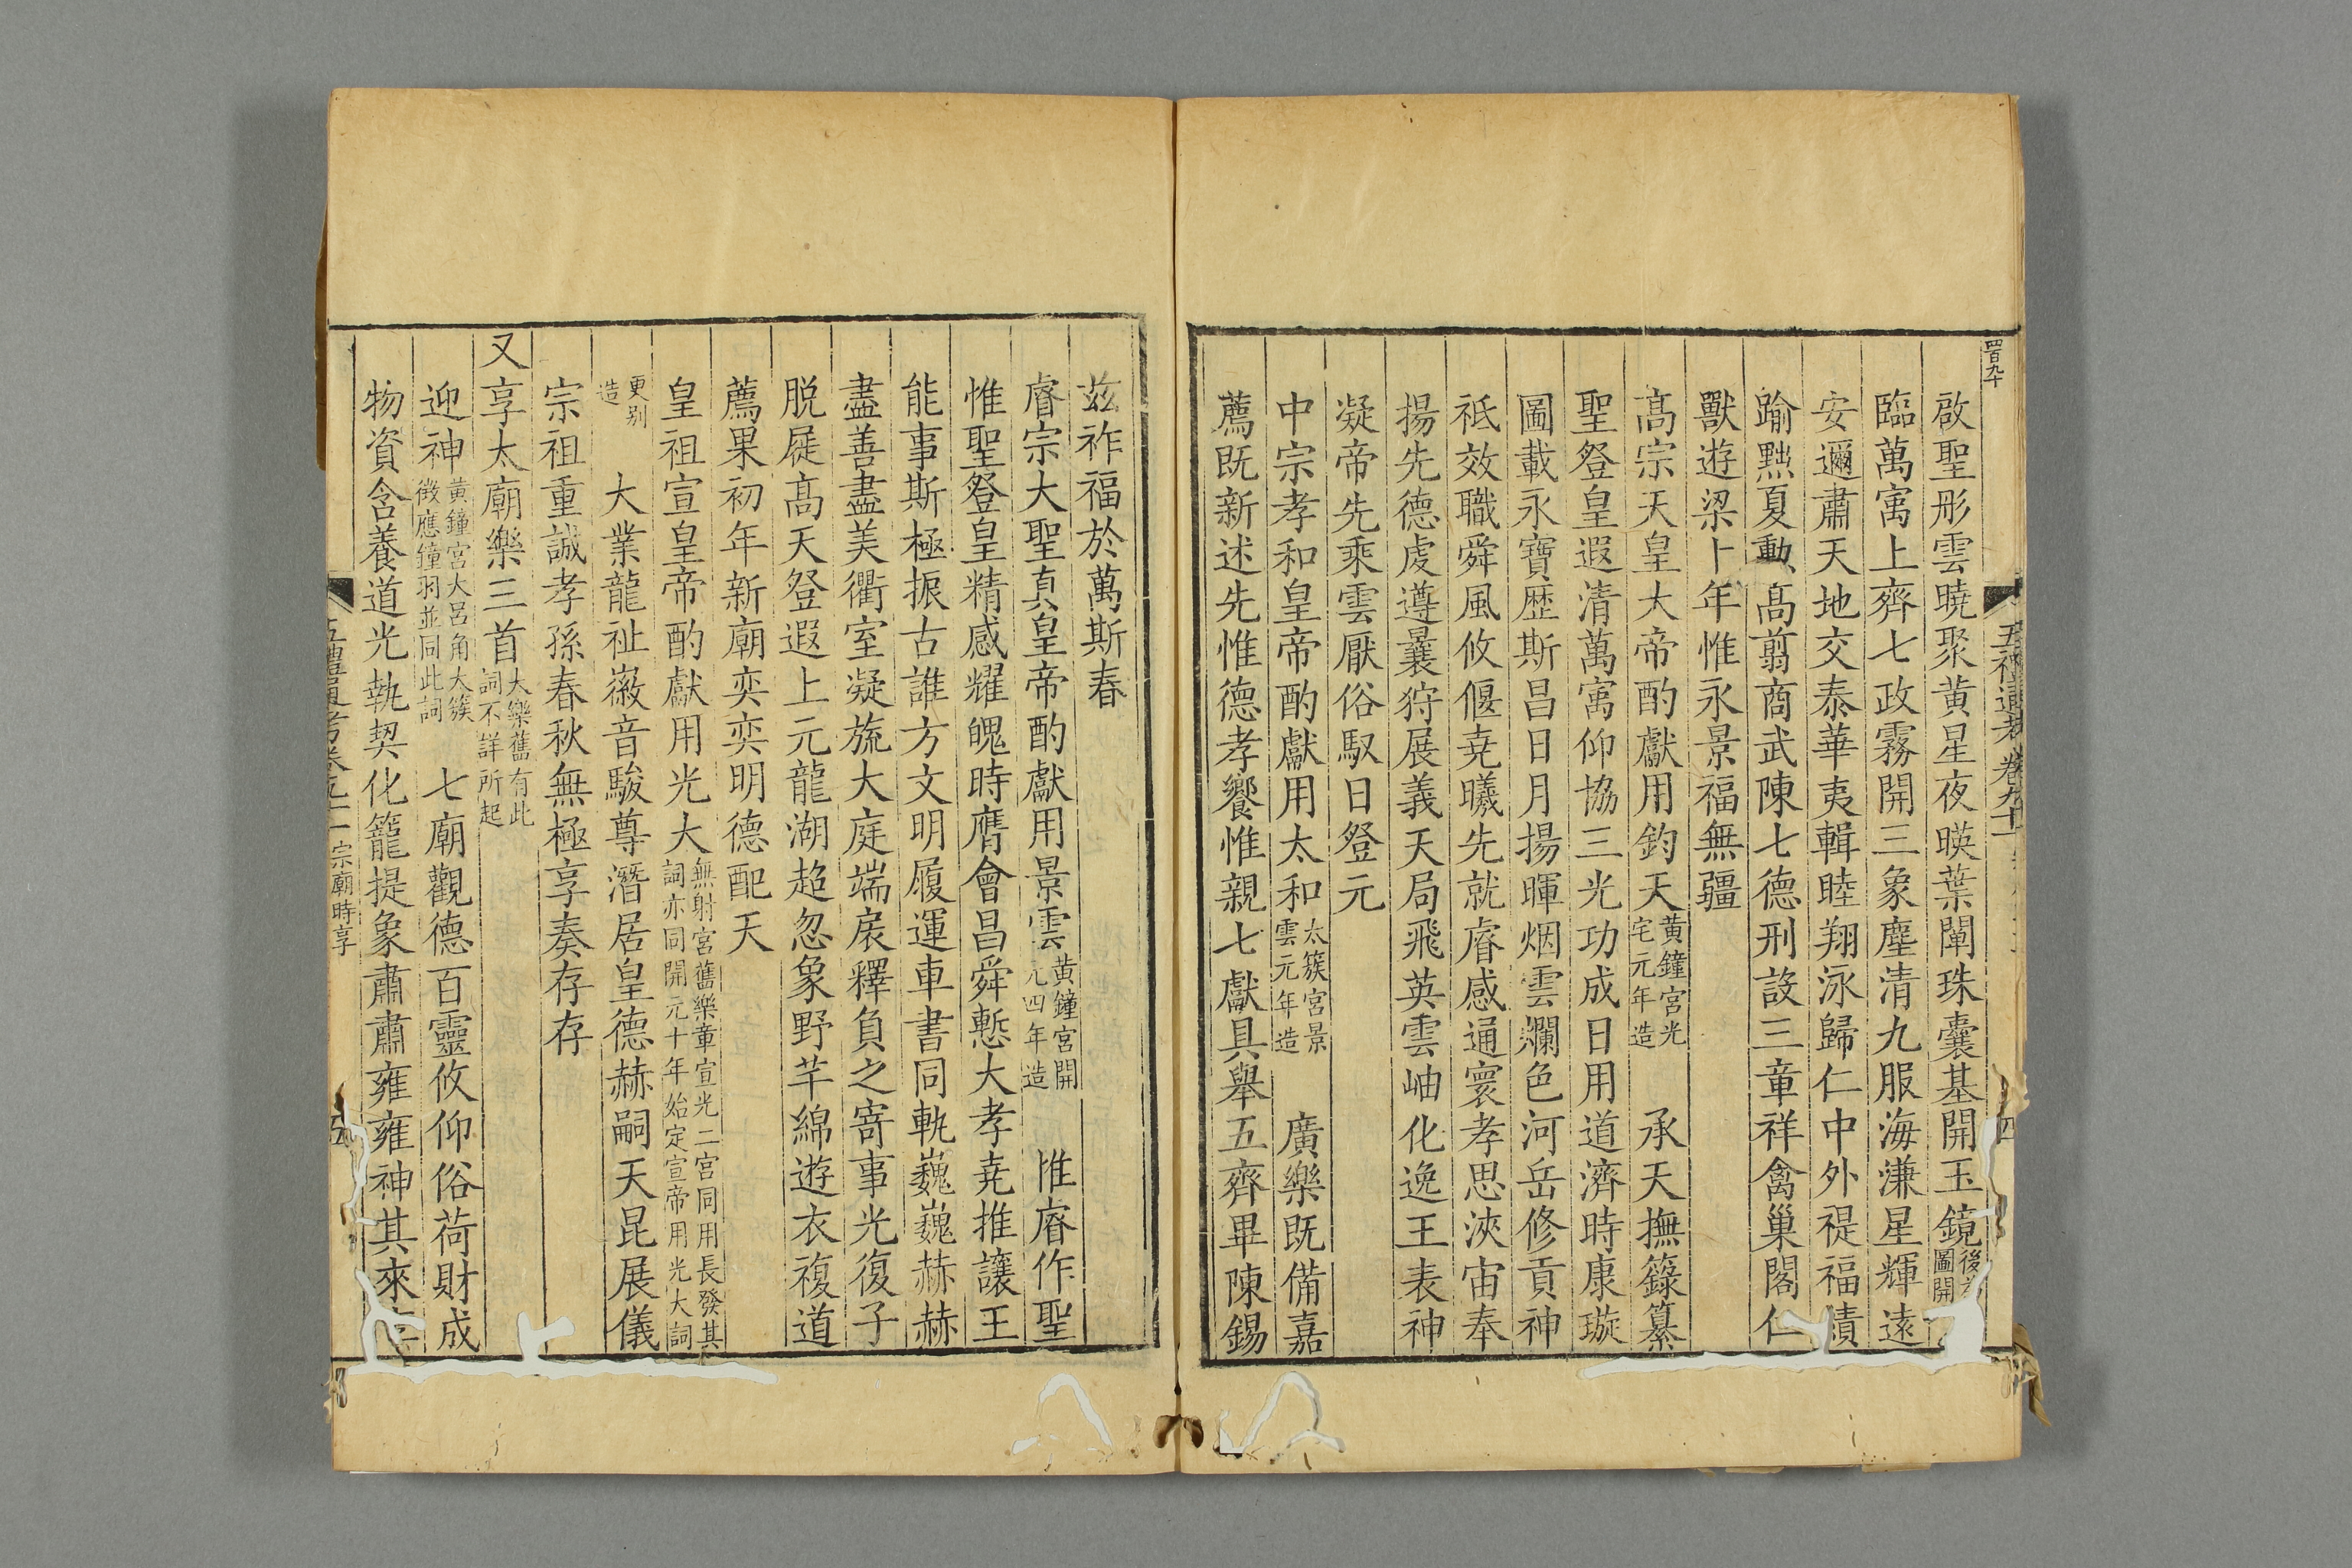 四百九十
五禮通考卷九十一
四
啟聖彤雲曉聚黄星夜暎葉闡珠囊基開玉鏡後圖開
臨萬寓上齊七政霧開三象塵清九服海溓星輝遠
安邇肅天地交泰華夷輯睦翔泳歸仁中外禔福績
踰黜夏勳髙翦商武陳七德刑設三章祥禽巢閣仁
獸遊梁卜年惟永景福無疆
髙宗天皇大帝酌獻用鈞天黄鐘宮光宅元年造 承天撫籙纂
聖登皇遐清萬寓仰協三光功成日用道濟時康璇
圖載永寶歴斯昌日月揚暉烟雲爛色河岳修貢神
祇效職舜風攸偃堯曦先就睿感通寰孝思浹宙奉
揚先德虔遵曩狩展義天局飛英雲岫化逸王表神
凝帝先乘雲厭俗馭日登元
中宗孝和皇帝酌獻用太和太簇宮景雲元年造 廣樂既備嘉
薦既新述先惟德孝饗惟親七獻具舉五齊畢陳錫
茲祚福於萬斯春
睿宗大聖真皇帝酌獻用景雲黄鐘宮開元四年造 惟睿作聖
惟聖登皇精感耀魄時膺會昌舜慙大孝堯推讓王
能事斯極振古誰方文明履運車書同軌巍巍赫赫
盡善盡美衢室凝旒大庭端扆釋負之寄事光復子
脱屣髙天登遐上元龍湖超忽象野芊綿遊衣複道
薦果初年新廟奕奕明德配天
皇祖宣皇帝酌獻用光大無射宮舊樂章宣光二宮同用長發其詞亦同開元十年始定宣帝用光大詞
更别造 大業龍祉徽音駿尊潛居皇德赫嗣天昆展儀
宗祖重誠孝孫春秋無極享奏存存
又享太廟樂三首大樂舊有此詞不詳所起
迎神黄鐘宮大呂角大簇徴應鐘羽並同此詞 七廟觀德百靈攸仰俗荷財成
物資含養道光執契化籠提象肅肅雍雍神其來
五禮通考卷九十一宗廟時享
五